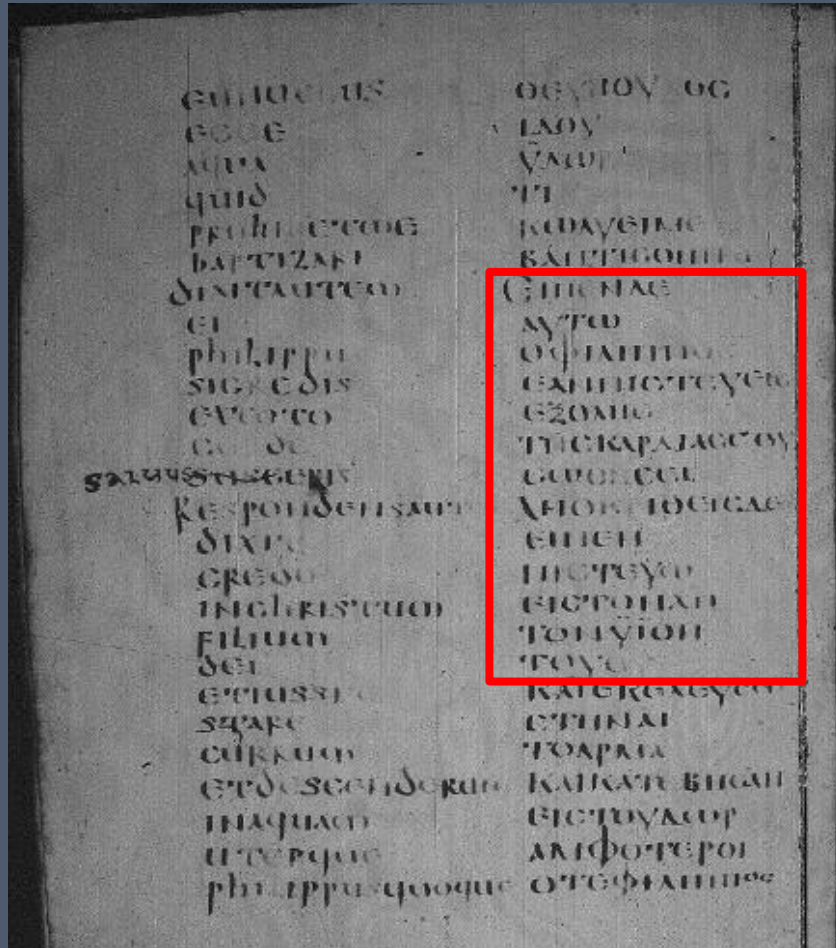 eunuchus
ecce
aqua
quid
prohibetme
baptizari
dixitautem
ei
philippus
sicredis
extoto
corde
eris
Respondensaute
dixit
credo
inchristum
filium
dei
etiussit
stare
currum
etdescenderunt
inaquam
uterque
philippusquoque
ΟΕΥΝΟΥΧΟϹ
ΙΔΟΥ
ΥΔΩΡ
ΤΙ
ΚΩΛΥΕΙΜΕ
ΒΑΠΤΙϹΘΗΝΑΙ
ΕΙΠΕΝΔΕ
ΑΥΤΩ
ΟΦΙΛΙΠΠΟϹ
ΕΑΝΠΙϹΤΕΥΕΙϹ
ΕΞΟΛΗϹ
ΤΗϹΚΑΡΔΙΑϹϹΟΥ
ϹΩΘΗϹΕΙ
ΑΠΟΚΡΙΘΕΙϹΔΕ
ΕΙΠΕΝ
ΠΙϹΤΕΥΩ
ΕΙϹΤΟΝΧΝ
ΤΟΝΥΙΟΝ
ΤΟΥΘΥ
ΚΑΙΕΚΕΛΕΥϹΕΝ
ϹΤΗΝΑΙ
ΤΟΑΡΜΑ
ΚΑΙΚΑΤΕΒΗϹΑΝ
ΕΙϹΤΟΥΔΩΡ
ΑΜΦΟΤΕΡΟΙ
ΟΤΕΦΙΛΙΠΠΟϹ